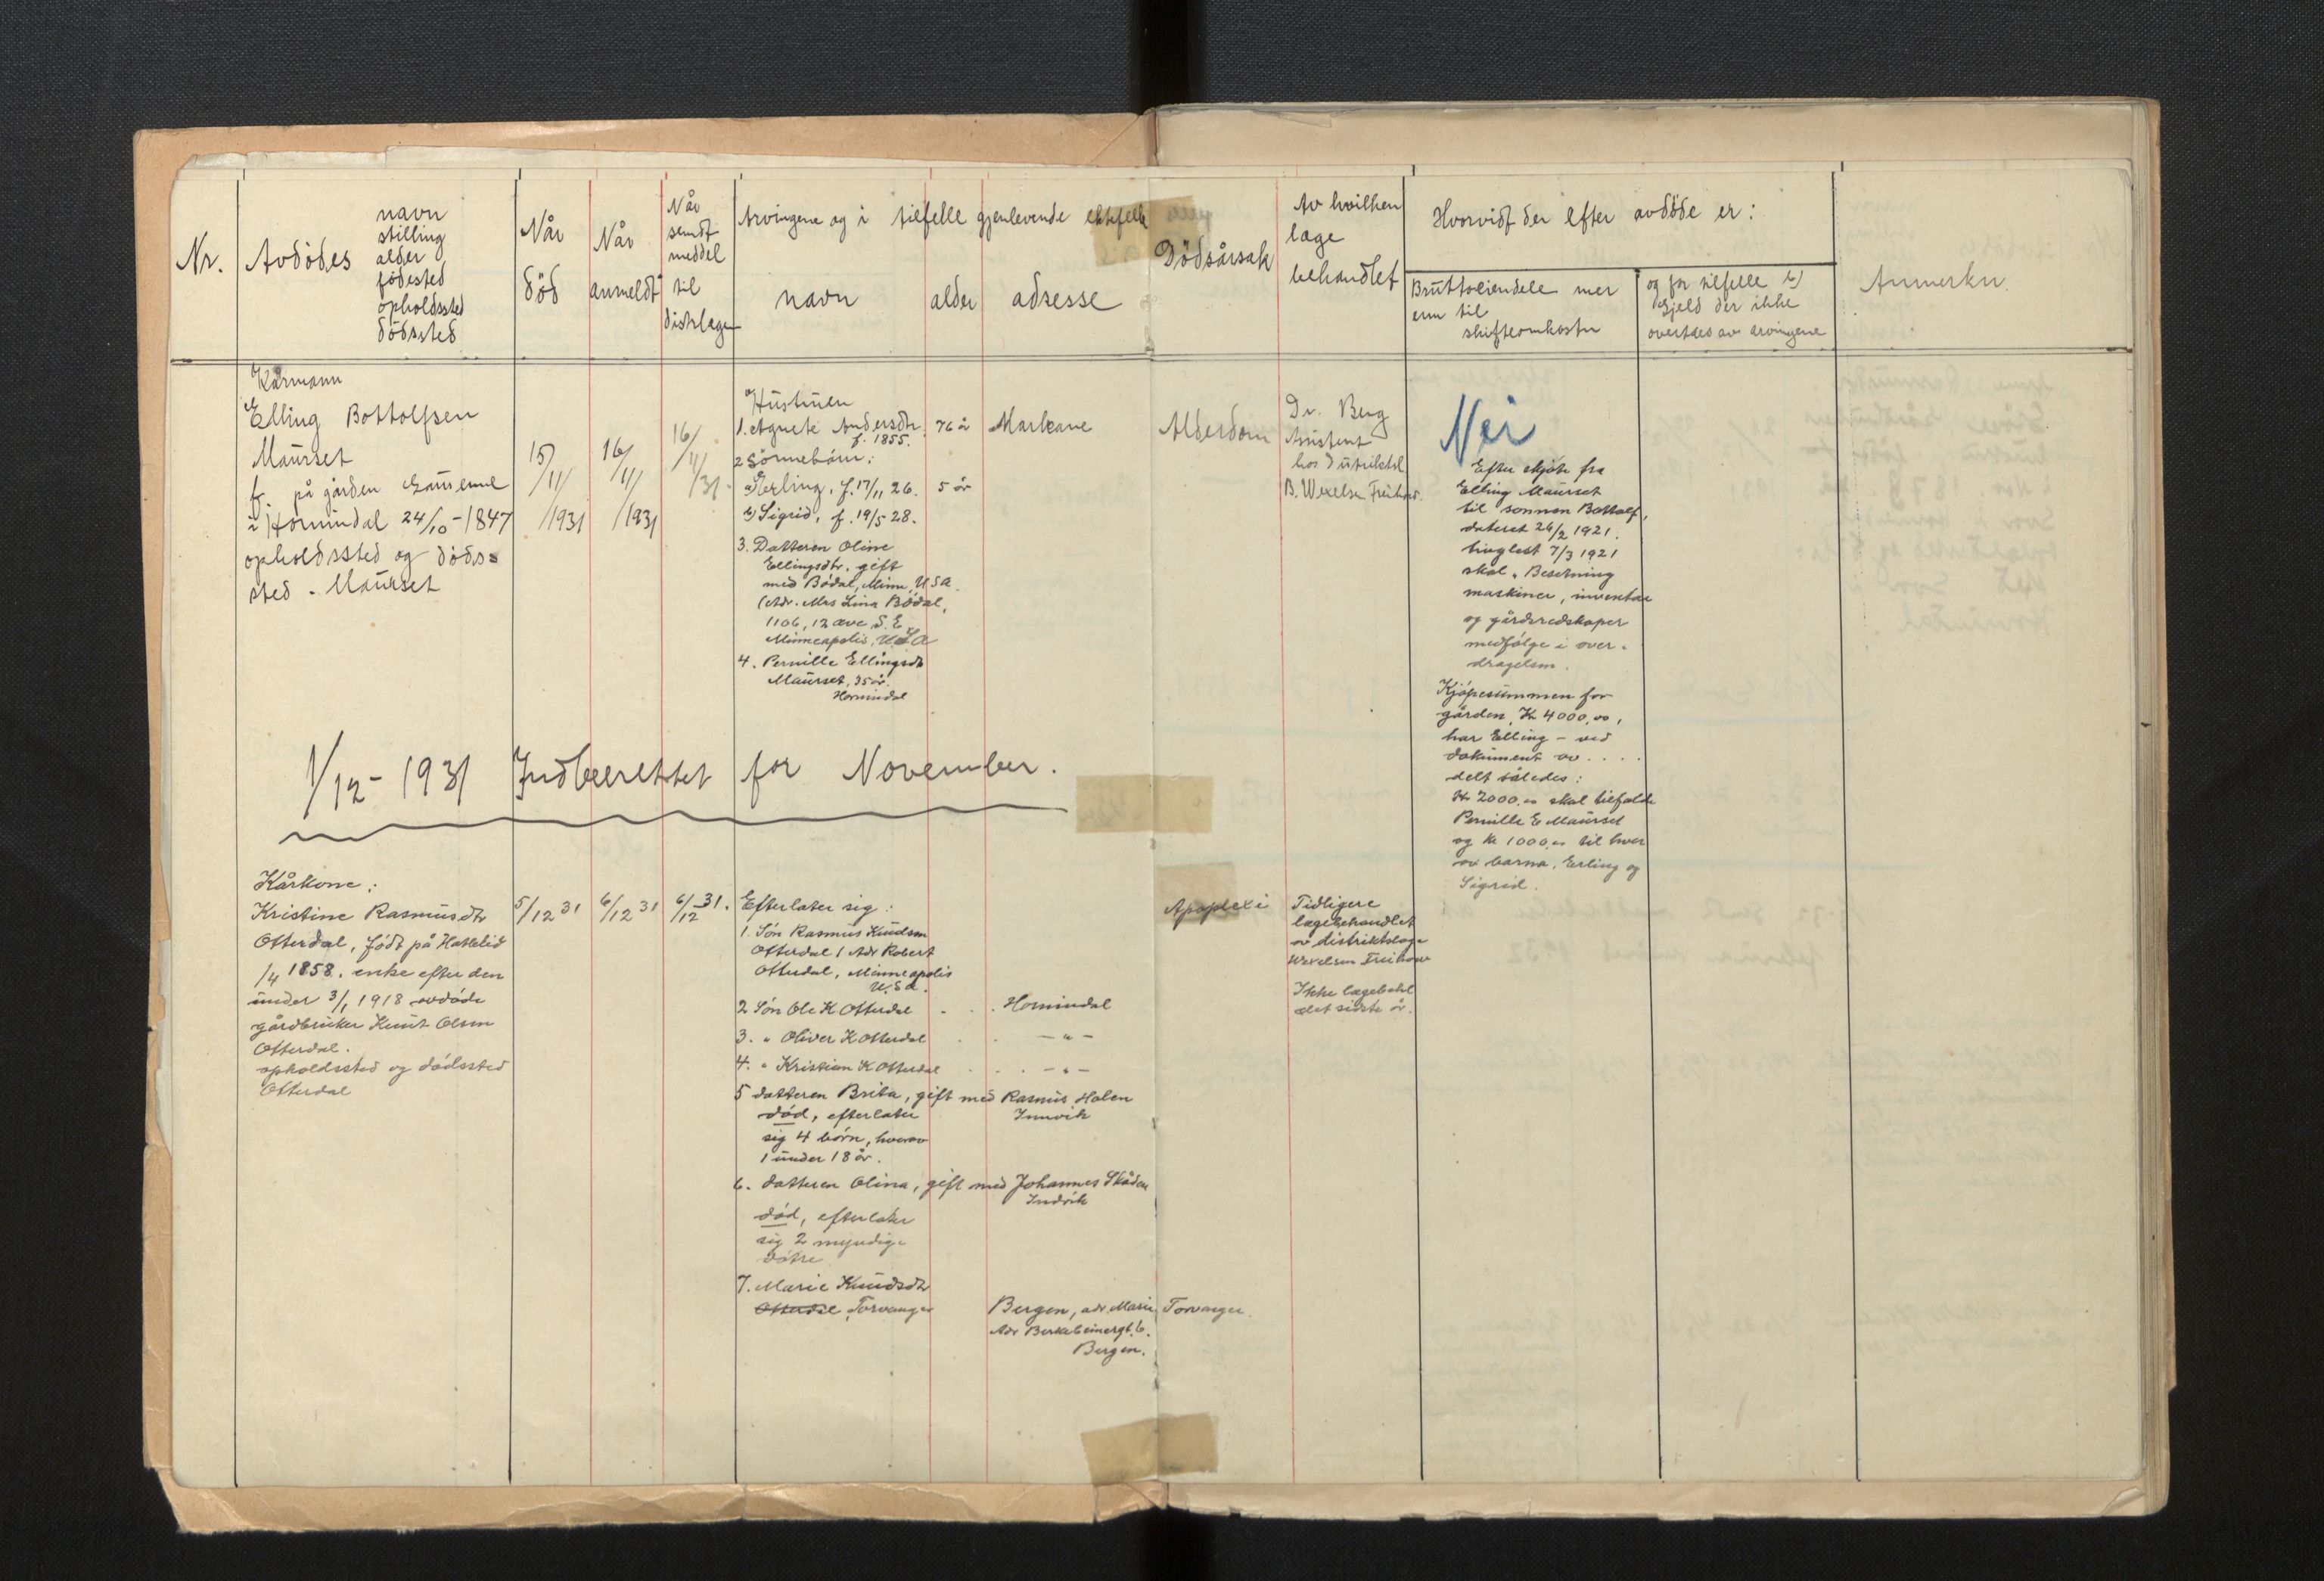 Nr.
Avdödes
navn
stilling
alder
födested
opholdssted
dödssted
Når
död
Når
anmeldt
Når
sendt
meddel
til
distrlæge
Arvingene og i tilfelle gjenlevende ektefelle
navn
alder
adresse
Dödsårsak
Av hvilken
læge
behandlet
Hvorvidt der efter avdöde er:
Bruttoeiendele mer
enn til
skifteomkostn
og for tilfelle b)
Gjeld der ikke
overtaes av arvingene
Anmerkn.
Kårmann
Elling Bottolfsen
Maurset
f. på gården
i Hornindal 24/10-1847
opholdssted og döds-
sted - Maurset
15/
/11
/1931
16/
/11
/1931
16/
/11
/31.
Hustruen
1. Agnete Andersdtr.
f. 1855.
76 år
Markane
2 Sönnebörn:
a) Erling, f. 17/11 26.
5 år
b) Sigrid, f. 19/5 28.
3. Datteren Oline
Ellingsdtr. gift
med Bödal, Minn, USA.
(Adr. Mrs Lina Bödal,
1106, 12 ave S. E.
Minneapolis, USA
4. Pernille Ellingsdtr
Maurset, 35 år.
Hornindal
Alderdom
Dr. Berg
Assistent
hos distriktsl.
B. Wexelsen Freihow.
Nei
Efter skjöte fra
Elling Maurset
til sonnen Bottolf,
dateret 26/2 1921.
tinglest 7/3 1921
skal. Besetning
maskiner, inventar
og gårdsredskaper
medfölge i over-
dragelsen.
Kjöpesummen for
gården, Kr 4000,00,
har Elling - ved
dokument av . . . .
delt således:
Kr 2000,00 skal tilfalde
Pernille E Maurset
og kr 1000,00 til hver
av barna, Erling og
Sigrid.
1/12 - 1931 Indberettet for November.
Kårkone:
Kristine Rasmusdtr
Otterdal, födt på Hattelid
/4 1858. enke efter den
under 3/1 1918 avdöde
gårdbruker Knut Olsen
Otterdal.
opholdssted og dödssted
Otterdal
5/12 31
6/12 31
6/12 31.
Efterlater sig:
1. Sön Rasmus Knudsen
Otterdal (Adr Robert
Otterdal, Minneapolis
U.S.A.
2 Sön Ole K Otterdal . . . Hornindal
3. " Oliver K Otterdal . . — " —
4. " Kristian K Otterdal . . . — " —
5 datteren Brita, gift med Rasmus Holen
död, efterlater
Innvik
sig 4 börn, hvorav
1 under 18 år.
6. datteren Olina, gift med Johannes Skåden
Indvik
död, efterlater
sig 2 myndige
dötre
7. Marie Knudsdtr
Otterdal, Torvanger
Bergen, adr. Marie Torvanger.
Adr Birkebeinergt. 6.
Bergen.
Apoplexi
Tidligere
lægebehandlet
av distriktslæge
Wexelsen Freihow
Ikke lægebehl
det sidste år.